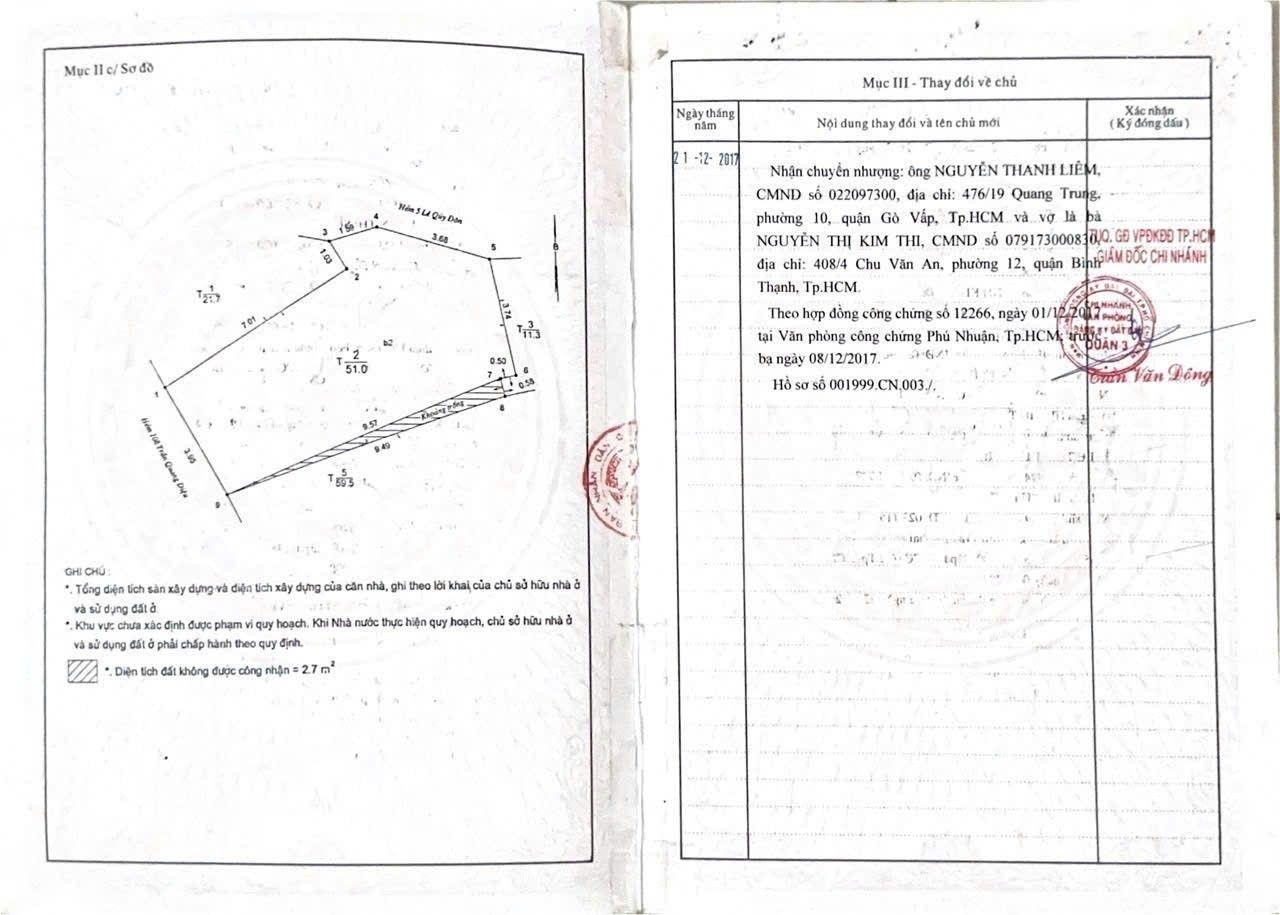 Mục II c/ Sơ đồ
Hẻm 5 Lê Quý Đôn
4
3
1.59
3.68
5
1.03
2
B
T 1
21.7
7.01
3.74
T 3
11.3
b2
T 2
51.0
0.50
7
6
0.55
8
1
Khoảng trống
9.57
9.49
Hẻm 108 Trần Quang Diệu
3.95
T 5
59.5
9
GHI CHÚ :
*. Tổng diện tích sàn xây dựng và diện tích xây dựng của căn nhà, ghi theo lời khai của chủ sở hữu nhà ở
và sử dụng đất ở.
*. Khu vực chưa xác định được phạm vi quy hoạch. Khi Nhà nước thực hiện quy hoạch, chủ sở hữu nhà ở
và sử dụng đất ở phải chấp hành theo quy định.
*. Diện tích đất không được công nhận = 2.7 m²
BAN NHÂN DÂN
Mục III - Thay đổi về chủ
Ngày tháng
năm
Nội dung thay đổi và tên chủ mới
Xác nhận
( Ký đóng dấu )
21 -12- 2017
Nhận chuyển nhượng: ông NGUYỄN THANH LIÊM,
CMND số 022097300, địa chỉ: 476/19 Quang Trung,
phường 10, quận Gò Vấp, Tp.HCM và vợ là bà
NGUYỄN THỊ KIM THI, CMND số 079173000830,
địa chỉ: 408/4 Chu Văn An, phường 12, quận Bình
Thạnh, Tp.HCM.
Theo hợp đồng công chứng số 12266, ngày 01/12/2017
tại Văn phòng công chứng Phú Nhuận, Tp.HCM; trước
bạ ngày 08/12/2017.
Hồ sơ số 001999.CN.003./.
TUQ. GĐ VPĐKĐĐ TP.HCM
GIÁM ĐỐC CHI NHÁNH
CHI NHÁNH
VĂN PHÒNG
ĐĂNG KÝ ĐẤT ĐAI
QUẬN 3
Trần Văn Đông